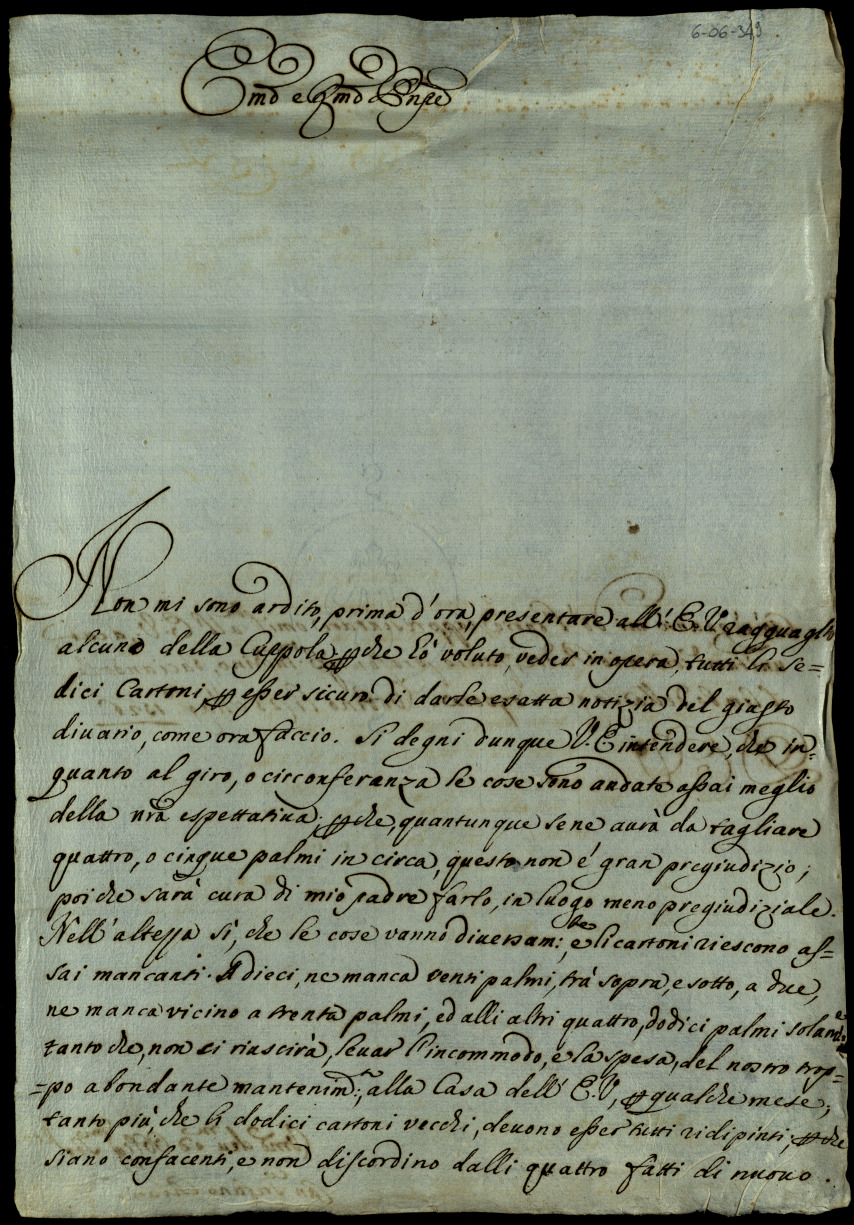 6-06-349
Emo e Rmo Pnpe
Non mi sono ardito, prima d'ora, presentare all' E.V. ragguaglio
alcuno della Cuppola, pche hò voluto, veder in opera, tutti li se=
dici Cartoni, p esser sicuro di darle esatta notizia del giusto
divario, come ora faccio. Si degni dunque V.E. intendere, che in=
quanto al giro, o circonferanza le cose sono andate assai meglio
della nrã espettativa; pche, quantunque se ne aurà da tagliare
quattro, o cinque palmi in circa, questo non é gran pregiudizio;
poiche sarà cura di mio Padre farlo, in luogo meno pregiudiziale.
Nell' altezza sì, che le cose vanno diversam:te, e li cartoni riescono as=
sai mancanti. A dieci, ne manca venti palmi, trà sopra, e sotto, a due,
ne manca vicino a trenta palmi, ed alli altri quattro, dodici palmi
tanto che, non ci riuscirà, levar l'incommodo, e la spesa, del nostro trop=
=po abondante mantenim:to, alla Casa dell' E.V, p qualche mese,
tanto più, che li dodici cartoni vecchi, devono esser tutti ridipinti, pche
siano confacenti, e non discordino dalli quattro fatti di nuovo.